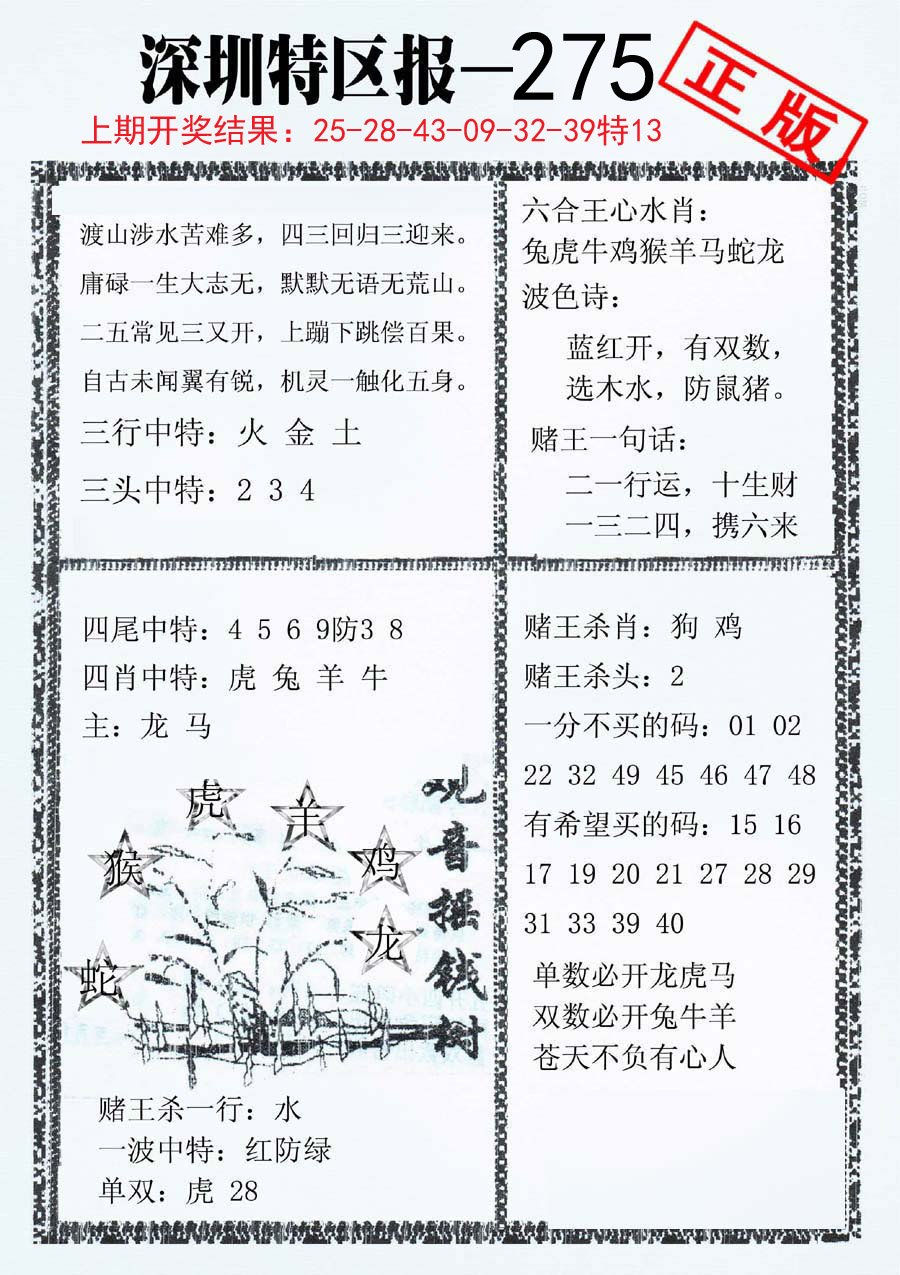 深圳特区报—275
正版
上期开奖结果：25-28-43-09-32-39特13
渡山涉水苦难多，四三回归三迎来。
庸碌一生大志无，默默无语无荒山。
二五常见三又开，上蹦下跳偿百果。
自古未闻翼有锐，机灵一触化五身。
三行中特：火 金 土
三头中特：2 3 4
六合王心水肖：
兔虎牛鸡猴羊马蛇龙
波色诗：
蓝红开，有双数，
选木水，防鼠猪。
赌王一句话：
二一行运，十生财
一三二四，携六来
四尾中特：4 5 6 9防3 8
四肖中特：虎 兔 羊 牛
主：龙 马
虎
羊
猴
鸡
龙
蛇
观音摇钱树
赌王杀一行：水
一波中特：红防绿
单双：虎 28
赌王杀肖：狗 鸡
赌王杀头：2
一分不买的码：01 02
22 32 49 45 46 47 48
有希望买的码：15 16
17 19 20 21 27 28 29
31 33 39 40
单数必开龙虎马
双数必开兔牛羊
苍天不负有心人